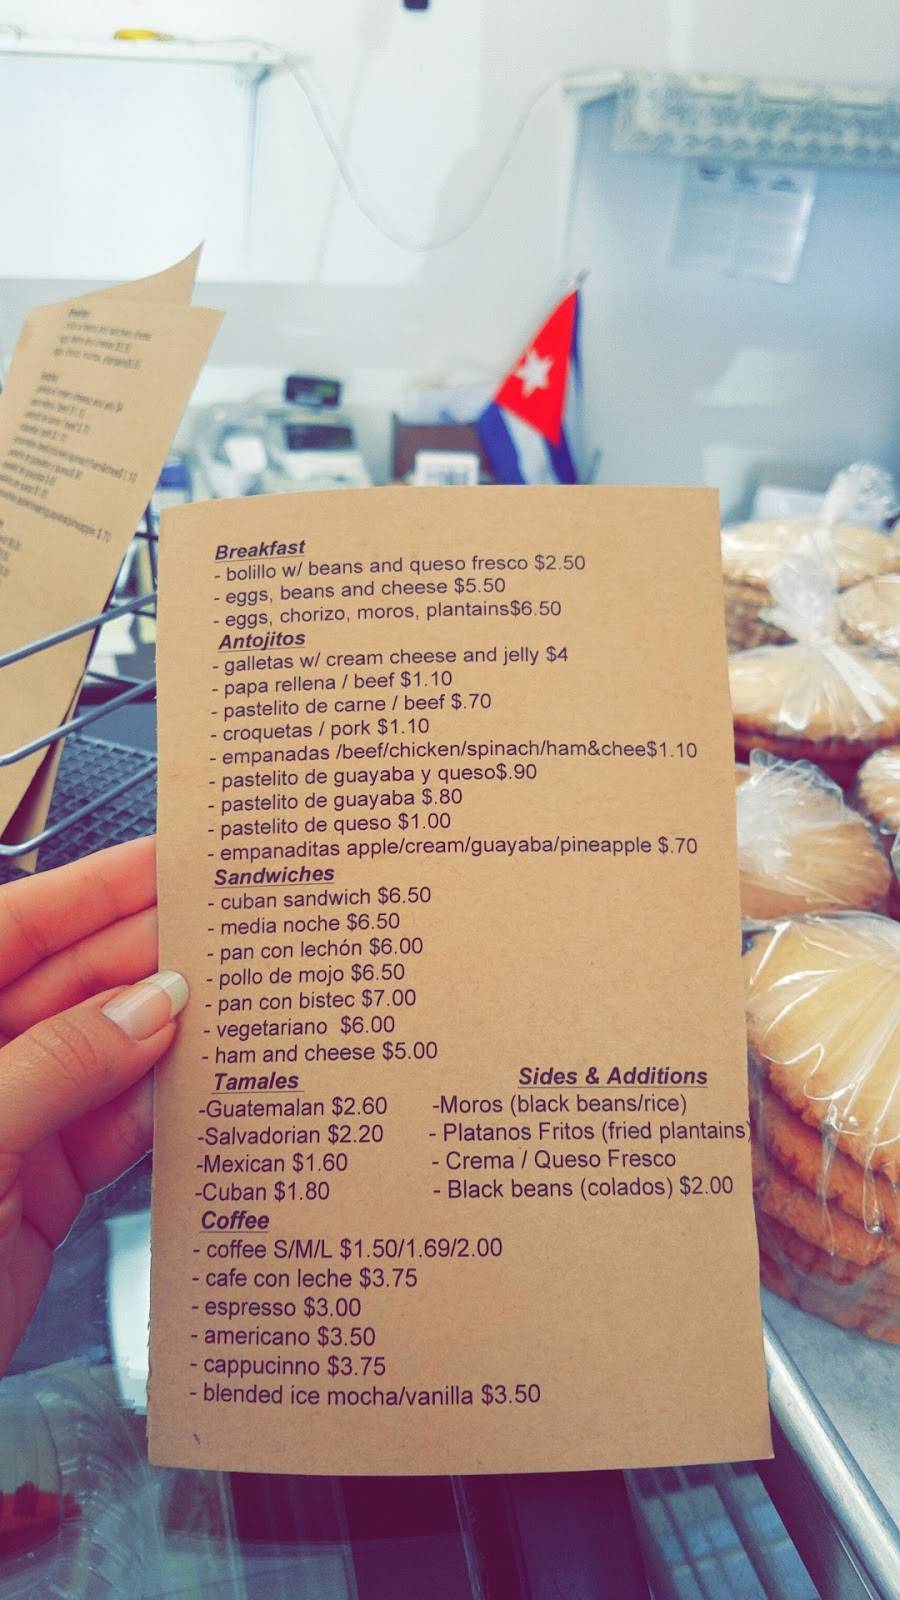 Breakfast
- bolillo w/ beans and queso fresco $2.50
- eggs, beans and cheese $5.50
- eggs, chorizo, moros, plantains$6.50
Antojitos
- galletas w/ cream cheese and jelly $4
- papa rellena / beef $1.10
- pastelito de carne / beef $.70
- croquetas / pork $1.10
- empanadas /beef/chicken/spinach/ham&chee$1.10
- pastelito de guayaba y queso$.90
- pastelito de guayaba $.80
- pastelito de queso $1.00
- empanaditas apple/cream/guayaba/pineapple $.70
Sandwiches
- cuban sandwich $6.50
- media noche $6.50
- pan con lechón $6.00
- pollo de mojo $6.50
- pan con bistec $7.00
- vegetariano $6.00
- ham and cheese $5.00
Tamales
-Guatemalan $2.60
-Salvadorian $2.20
-Mexican $1.60
-Cuban $1.80
Sides & Additions
-Moros (black beans/rice)
- Platanos Fritos (fried plantains)
- Crema / Queso Fresco
- Black beans (colados) $2.00
Coffee
- coffee S/M/L $1.50/1.69/2.00
- cafe con leche $3.75
- espresso $3.00
- americano $3.50
- cappucinno $3.75
- blended ice mocha/vanilla $3.50